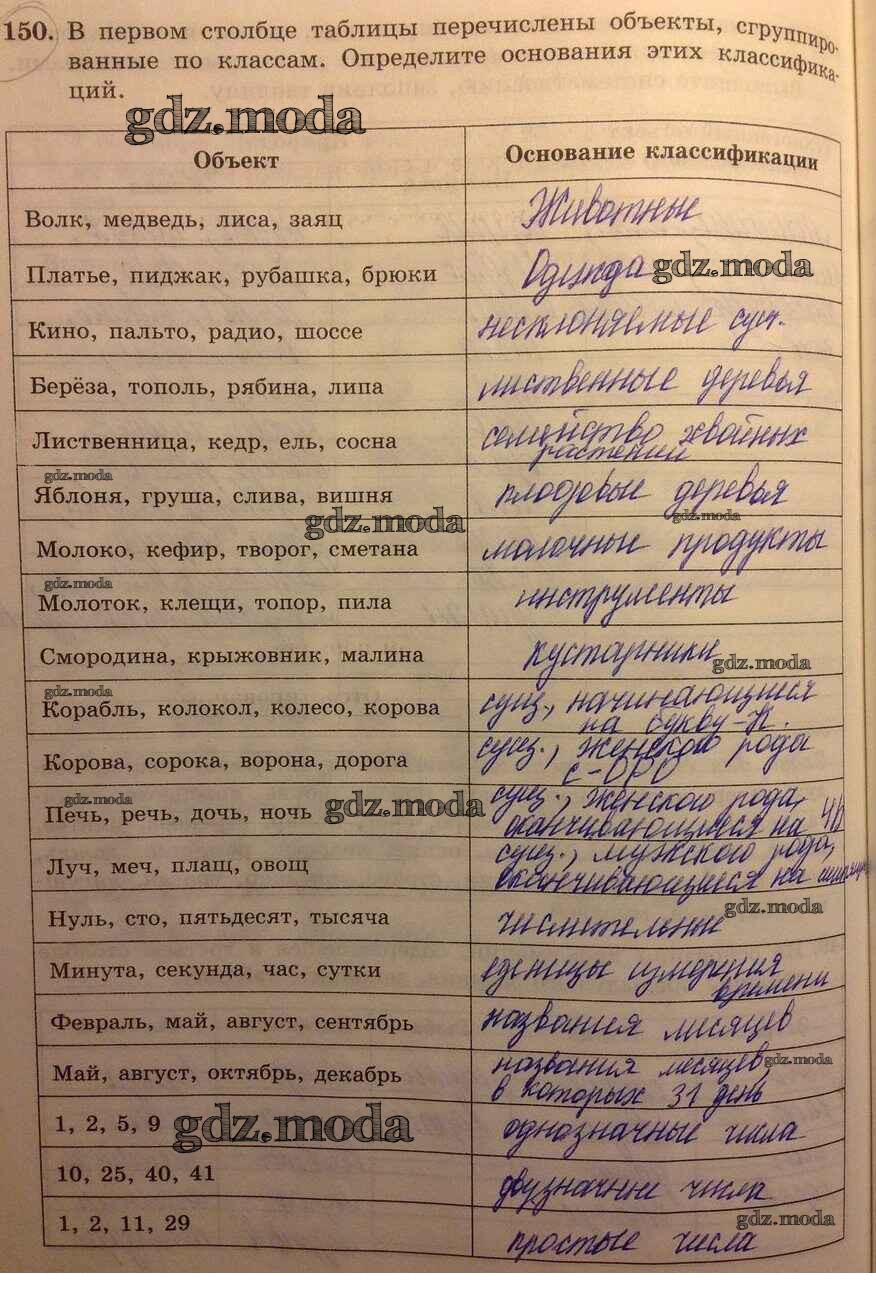 150. В первом столбце таблицы перечислены объекты, сгруппиро-
ванные по классам. Определите основания этих классифика-
ций.
gdz.moda
Объект Основание классификации
Волк, медведь, лиса, заяц Животные
Платье, пиджак, рубашка, брюки Одежда gdz.moda
Кино, пальто, радио, шоссе несклоняемые сущ.
Берёза, тополь, рябина, липа лиственные деревья
Лиственница, кедр, ель, сосна семейство хвойных
растений
gdz.moda
Яблоня, груша, слива, вишня плодовые деревья
gdz.moda gdz.moda
Молоко, кефир, творог, сметана молочные продукты
gdz.moda
Молоток, клещи, топор, пила инструменты
Смородина, крыжовник, малина кустарники gdz.moda
gdz.moda
Корабль, колокол, колесо, корова сущ., начинающиеся
на букву-К.
Корова, сорока, ворона, дорога сущ., женского рода
с-ОРО
gdz.moda
Печь, речь, дочь, ночь gdz.moda сущ., женского рода,
оканчивающиеся на ЧЬ
Луч, меч, плащ, овощ сущ., мужского рода,
оканчивающиеся на
gdz.moda
Нуль, сто, пятьдесят, тысяча числительные
Минута, секунда, час, сутки еденицы измерения
времени
Февраль, май, август, сентябрь названия месяцев
Май, август, октябрь, декабрь названия месяцев, gdz.moda
в которых 31 день
1, 2, 5, 9 gdz.moda однозначные числа
10, 25, 40, 41 двузначные числа
gdz.moda
1, 2, 11, 29 простые числа